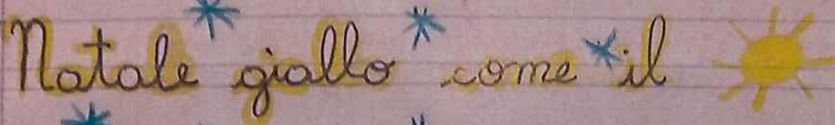 Natale giallo come il